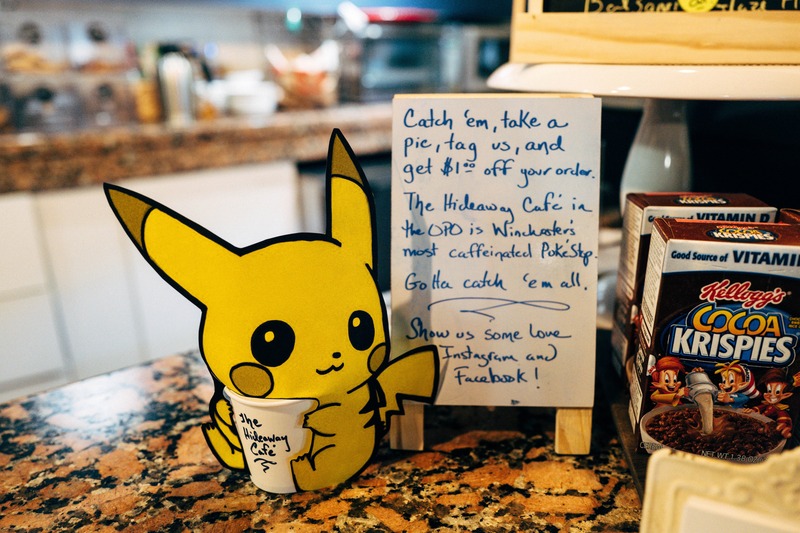 Balsamic Glaze
Catch 'em, take a
pic, tag us, and
get $1.00 off your order.
The Hideaway Café in
the OPO is Winchester's
most caffeinated PokéStop.
Gotta catch 'em all.
Show us some love
Instagram and
Facebook!
The
Hideaway
Café
KRISPIES
VITAMIN D
KRISPIES
Good Source of VITAMIN
Kellogg's
COCOA
KRISPIES
NET WT 1.38